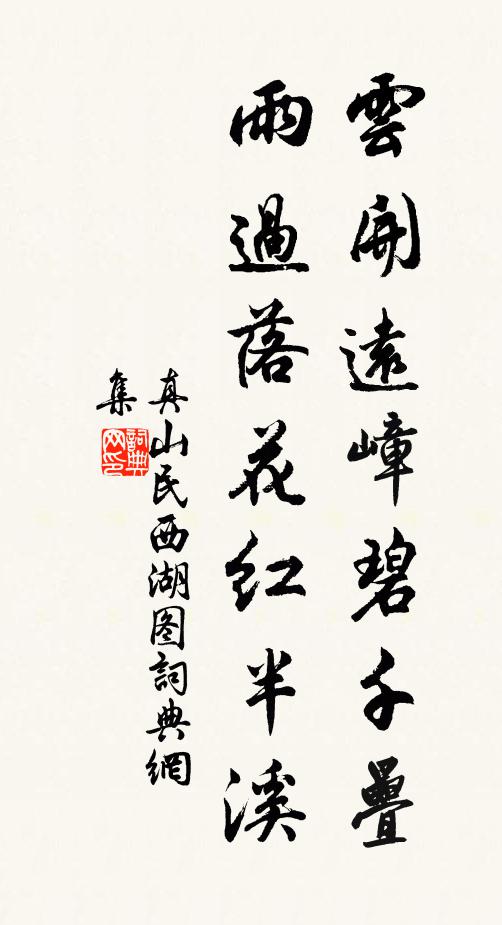 雲開遠嶂碧千疊
雨過落花红半溪
真山民西湖图詞典網
集
詞典网印